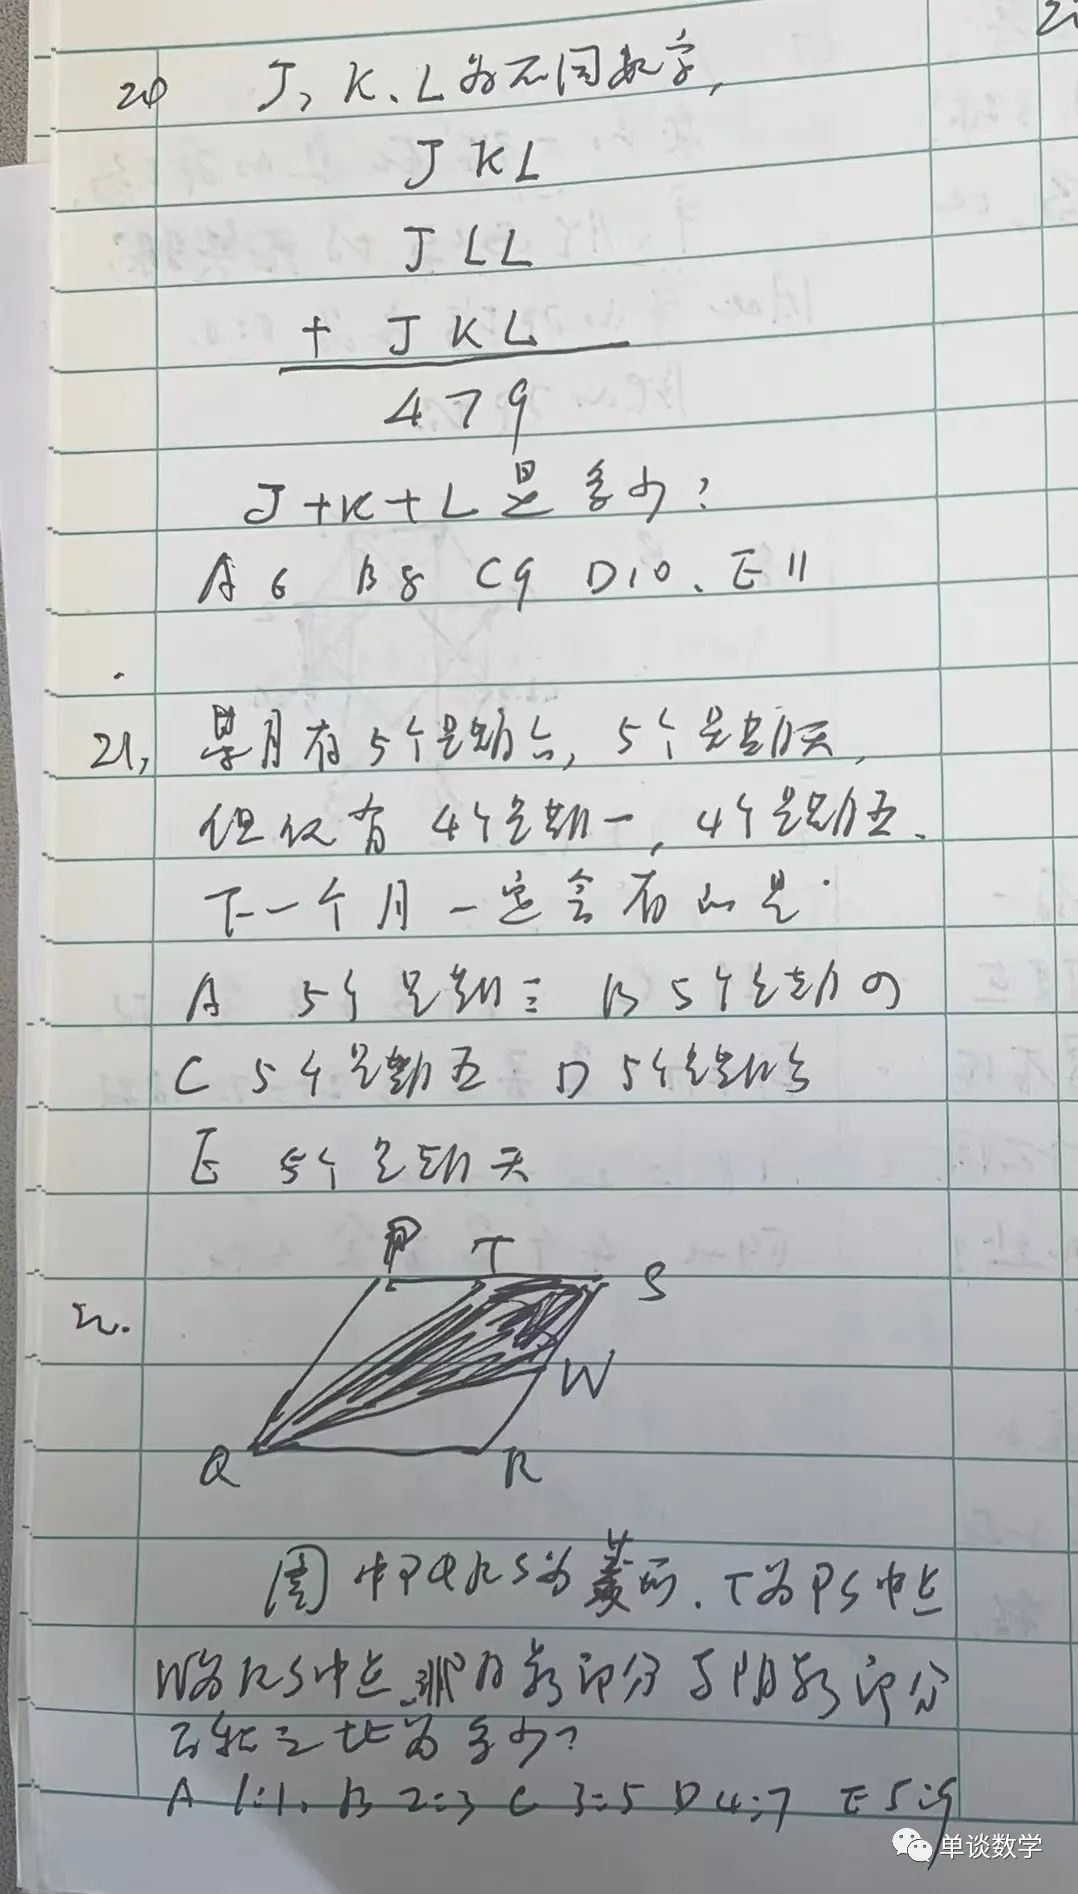 20 J、K、L为不同数字,
JKL
JLL
+ JKL
479
J+K+L是多少?
A 6 B 8 C 9 D 10、E 11
21, 某月有5个星期六, 5个星期天,
但仅有 4个星期一, 4个星期五.
下一个月一定会有的是
A 5个星期三 B 5个星期四
C 5个星期五 D 5个星期六
E 5个星期天
P T S
22.
W
Q R
图中PQRS为菱形. T为PS中点
W为RS中点 非阴影部分与阴影部分
面积之比为多少?
A 1:1, B 2:3 C 3:5 D 4:7 E 5:9
单谈数学